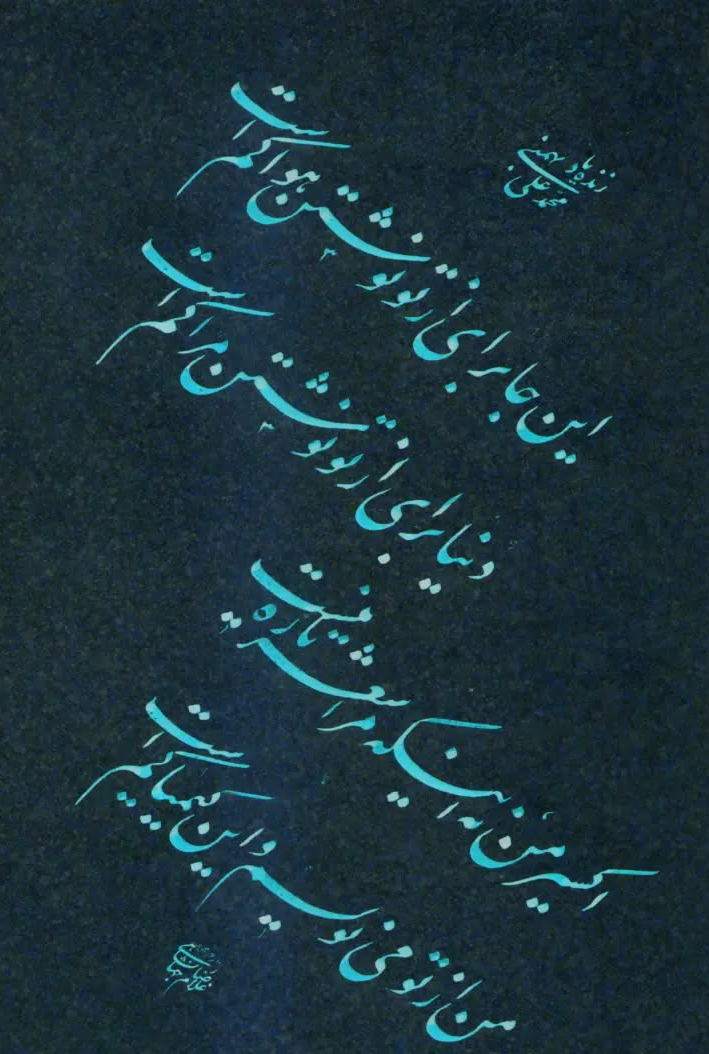 زنده یاد
محمد علی بهمنی
این جا برای از تو نوشتن هوا کم است
دنیا برای از تو نوشتن مرا کم است
اکسیر من نه اینکه مرا شعر تازه نیست
من از تو می نویسم و این کیمیا کم است